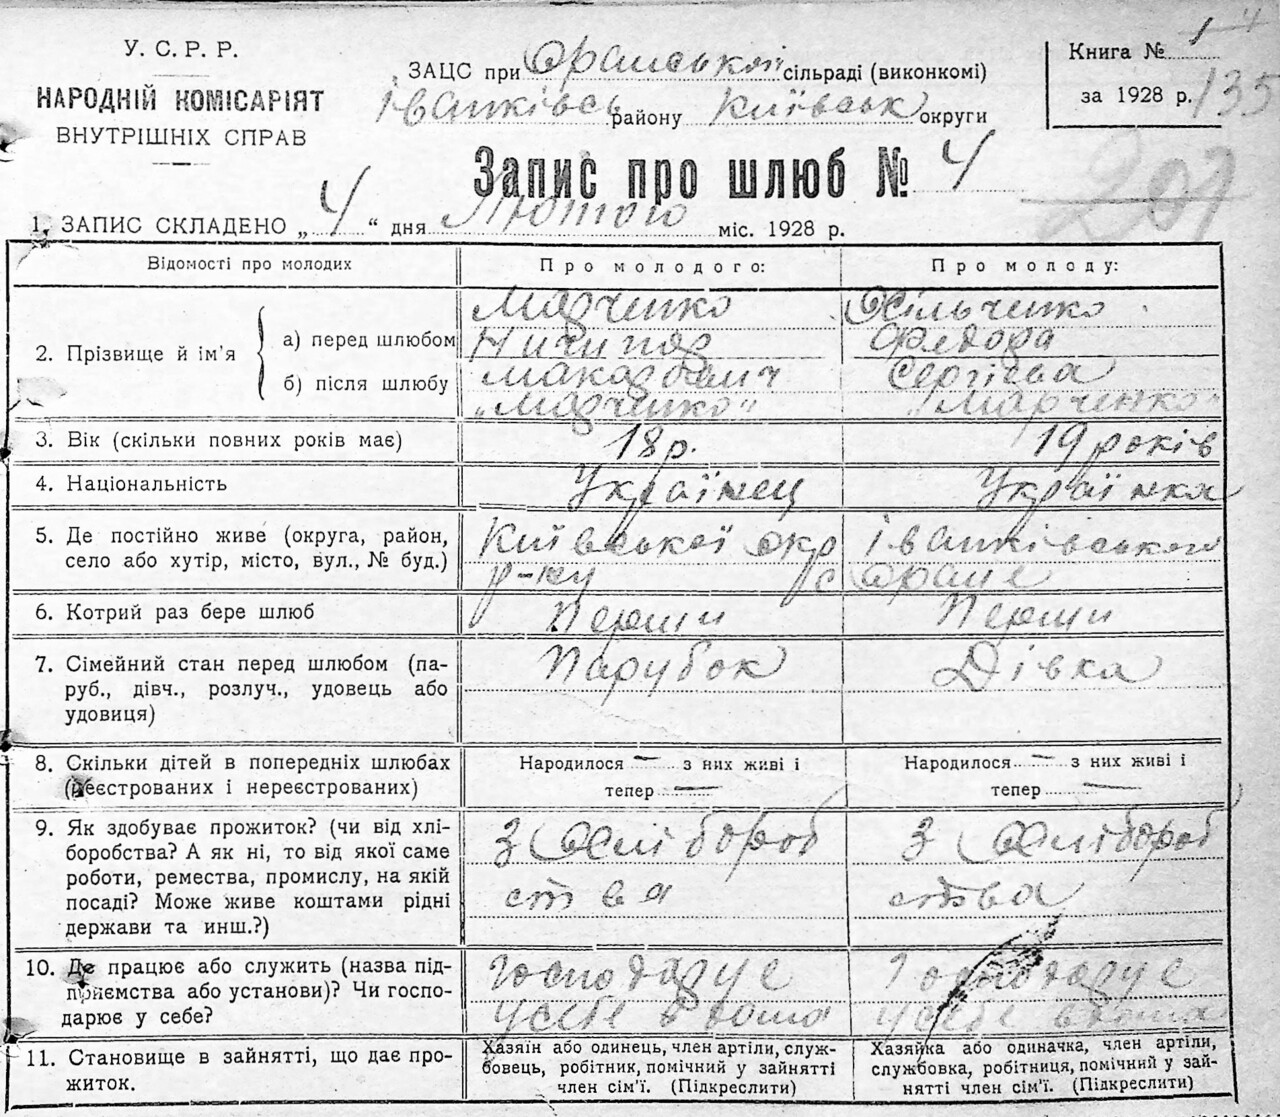 У. С. Р. Р.
НАРОДНІЙ КОМІСАРІЯТ
ВНУТРІШНІХ СПРАВ
ЗАЦС при Оранській сільраді (виконкомі)
Іванківсь району Київськ округи
Книга № 1 4
за 1928 р. 135
Запис про шлюб № 4
207
1. ЗАПИС СКЛАДЕНО „ 4 “ дня Лютого міс. 1928 р.
Відомості про молодих
Про молодого:
Про молоду:
2. Прізвище й ім’я
а) перед шлюбом
б) після шлюбу
Марченко
Ничипор
Макарович
„Марченко“
Хільченко
Федора
Сергієва
„Марченко“
3. Вік (скільки повних років має)
18 р.
19 років
4. Національність
Українец
Українка
5. Де постійно живе (округа, район,
село або хутір, місто, вул., № буд.)
Київської окр Іванківського
р-ну с Оране
6. Котрий раз бере шлюб
Перши
Перши
7. Сімейний стан перед шлюбом (па-
руб., дівч., розлуч., удовець або
удовиця)
Парубок
Дівка
8. Скільки дітей в попередніх шлюбах
(реєстрованих і нереєстрованих)
Народилося — з них живі і
тепер —
Народилося — з них живі і
тепер —
9. Як здобуває прожиток? (чи від хлі-
боробства? А як ні, то від якої саме
роботи, ремества, промислу, на якій
посаді? Може живе коштами рідні
держави та инш.?)
З Хлібороб
ства
З Хлібороб
ства
10. Де працює або служить (назва під-
приємства або установи)? Чи госпо-
дарює у себе?
Господарує
у себе вдома
Господарує
у себе вдома
11. Становище в зайнятті, що дає про-
житок.
Хазяїн або одинець, член артілі, служ-
бовець, робітник, помічний у зайнятті
член сім’ї. (Підкреслити)
Хазяйка або одиначка, член артілі,
службовка, робітниця, помічний у зай-
нятті член сім’ї. (Підкреслити)